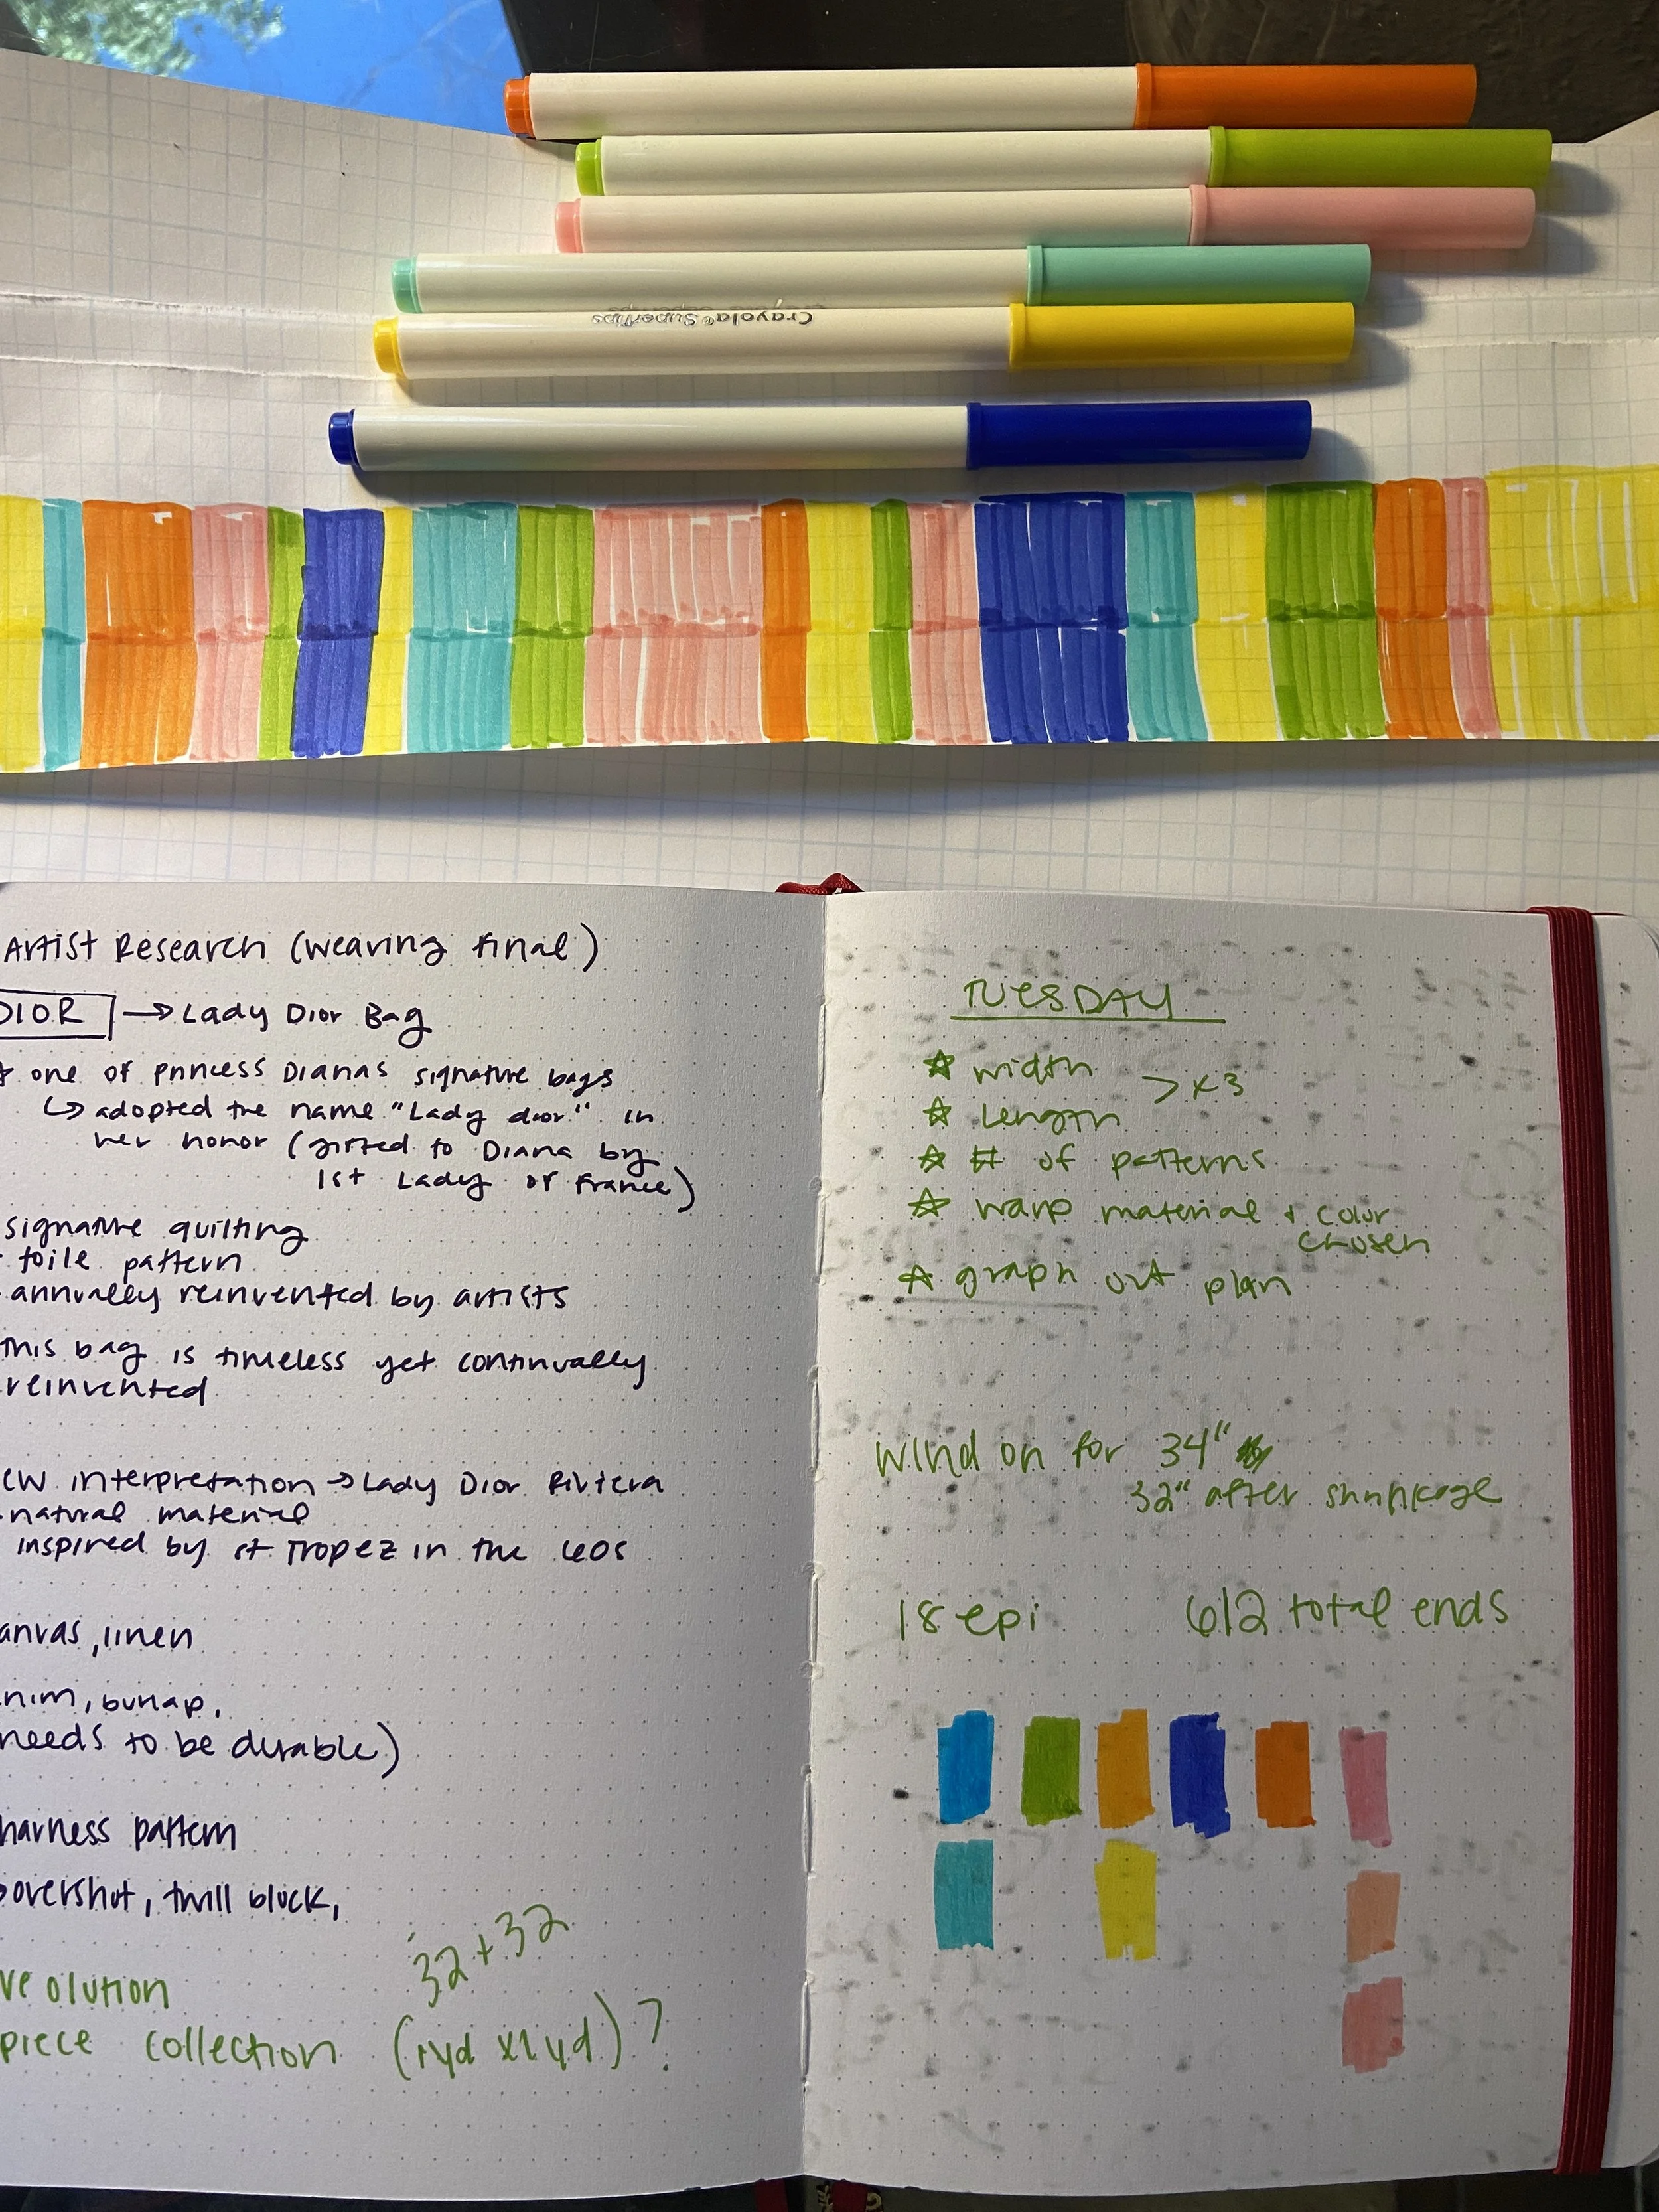 Crayola® SuperTips
Artist Research (weaving final)
DIOR → Lady Dior Bag
one of princess Dianas signature bags
↳ adopted the name "Lady dior" in
her honor (gifted to Diana by
1st Lady of France)
signature quilting
toile pattern
annually reinvented by artists
this bag is timeless yet continually
reinvented
ew interpretation → Lady Dior Riviera
natural material
inspired by st Tropez in the 60s
anvas, linen
nim, burlap,
needs to be durable)
harness pattern
overshot, twill block,
32 + 32
ve olution
piece collection (1yd x 1yd) ?
TUESDAY
☆ width
> x3
☆ Length
☆ # of patterns
☆ warp material + color
chosen
☆ graph out plan
wind on for 34"
32" after shrinkage
18 epi 612 total ends